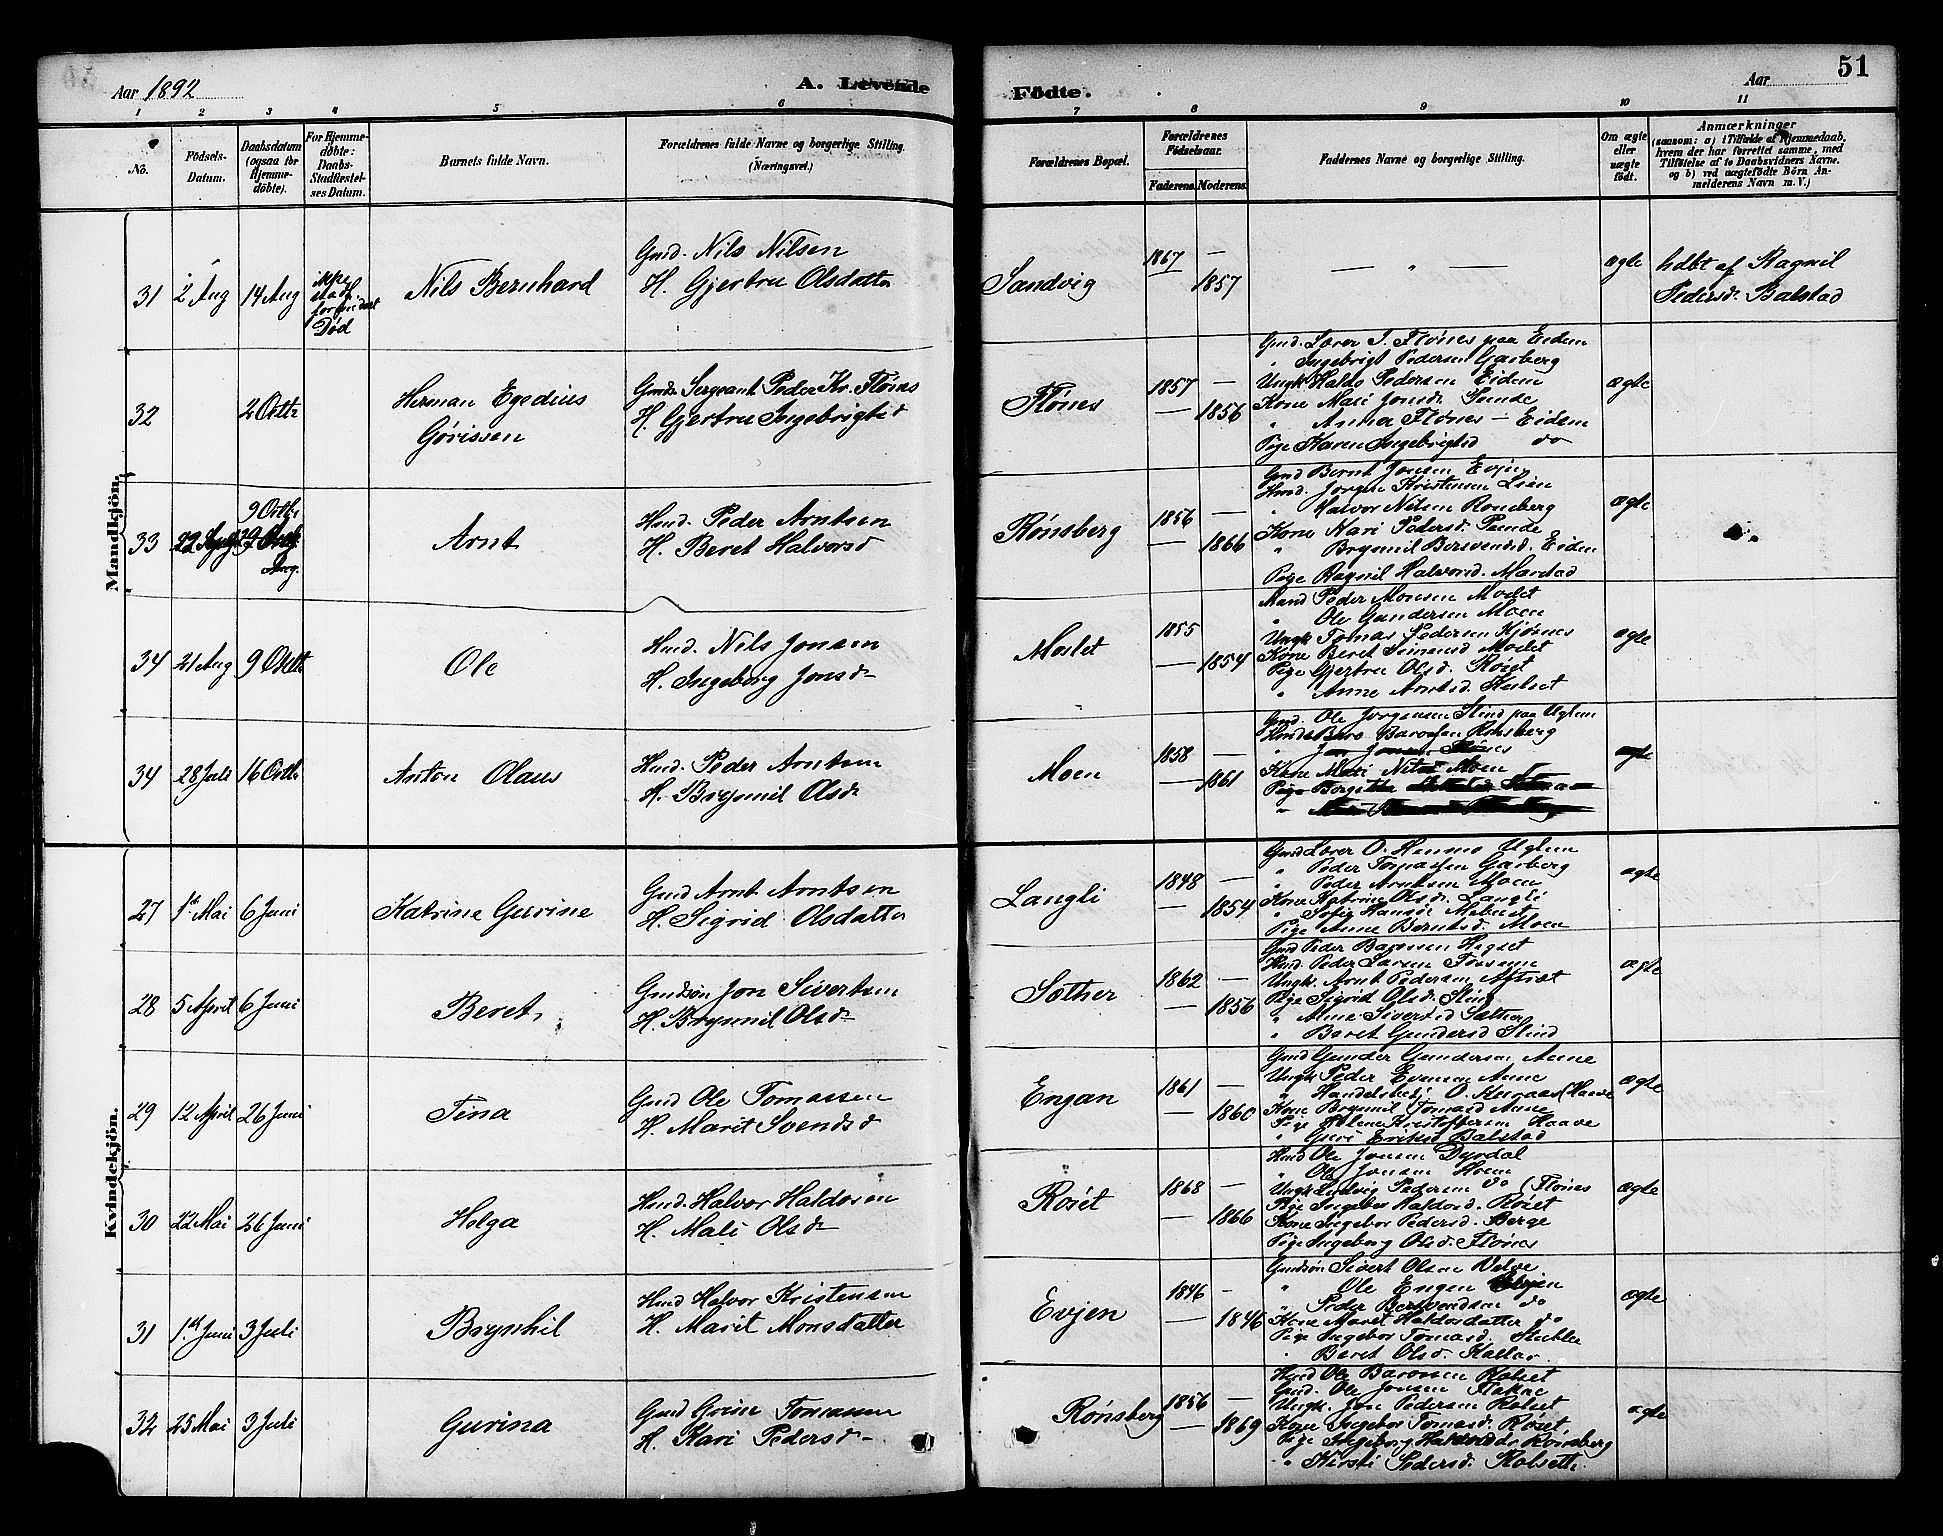 Aar 1892
A. Levende
Födte.
Aar
51
1 2 3 4 5 6 7 8 9 10 11
No.
Födsels-Datum.
Daabsdatum (ogsaa for Hjemmedöbte).
For Hjemmedöbte: Daabs-Stadfæstelses Datum.
Barnets fulde Navn.
Forældrenes fulde Navne og borgerlige Stilling.
(Næringsvei.)
Forældrenes Bopæl.
Forældrenes Födselsaar.
Faderens. Moderens.
Faddernes Navne og borgerlige Stilling.
Om ægte eller uægte født.
Anmærkninger
(saasom: a) i Tilfælde af Hjemmedaab, hvem der har forrettet samme, med Tilföielse af to Daabsvidners Navne. og b) ved uægtefödte Börn Anmelderens Navn m. V.)
Mandkjön.
31 2 Aug 14 Aug ikke stadf. Død
Nils Bernhard
Gmd. Nils Nilsen
H. Gjertru Olsdatter
Sandvig
1867 —
1857
— " —
ægte
hdbt af Ragnil
Pedersd. Balstad
32 2 Octb
Herman Egedius
Gørissen
Gmdr. Sergeant Peder Kr. Flønes
H. Gjertru Ingebrigtsd
Flønes
1857 —
— 1856
Gmd. Lærer J. Flønes paa Eidem
" Ingebrigt Pedersen Garberg
Ungk Haldo Pedersen Eidem
Kone Mari Jonsd. Sunde
" Anna Flønes — Eidem
Pige Karen Ingebrigtsd do
ægte
33 9 Octb
Arnt
Hmd. Peder Arntsen
H. Beret Halvorsd
Rønsberg
1856 —
— 1866
Gmd Bernt Jonsen Evjen
Hmd. Jørgen Kristensen Lien
" Halvor Nilsen Roneberg
Kone Mari Pedersd. Sunde
" Brynnil Bersvendsd. Eidem
Pige Ragnil Halvorsd. Marstad
ægte
34 21 Aug 9 Octb
Ole
Hmd. Nils Jonsen
H. Ingeborg Jonsd
Moslet
1855
— 1854
Mand Peder Monsen Moslet
" Ole Gundersen Moen
Ungk Tomas Pedersen Kjøsnes
Kone Beret Simensd Moslet
Pige Gjertru Olsd. Røset
" Anne Arntsd.
ægte
34 28 Juli 16 Octb
Anton Olaus
Hmd. Peder Arntsen
H. Brynnil Olsd
Moen
1858 —
— 1861
Gmd. Ole Jørgensen Slind paa Uglem
Hmd Baro Barosen Rønsberg
Kone Mari Nilsd Moen
Pige Borgitha
ægte
Kvindekjön.
27 1st Mai 6 Juni
Katrine Gurine
Gmd Arnt Arntsen
H. Sigrid Olsdatter
Langli
1848 —
— 1854
Gmd Lærer O. Hammer Uglem
" Peder Tomassen Garberg
" Peder Arntsen Moen
Kone Katrine Olsd. Langli
" Sofie Hansd. Mebust
Pige Anne Berntsd. Moen
ægte
28 5 April 6 Juni
Beret
Gmdsøn Jon Sivertsen
H. Brynnil Olsd
Sæther
1862 —
— 1856
Gmd Peder Barosen Hegset
Hmd. Peder Larsen
Ungk. Arnt Pedersen Aftret
Pige Sigrid Olsd. Slind
" Anne Sivertsd Sæther
" Beret Gundersd Slind
ægte
29 12 April 26 Juni
Tina
Gmd Ole Tomassen
H. Marit Svendsd
Engan
1861 —
— 1860
Gmd Gunder Gundersen Aune
Ungk Peder Evensen Aune
" Handelsbetj. O. (Haave
Kone Brynnil Tomasd Aune
Pige Oline Kristoffersen Haave
" Guri Eriksd Balstad
ægte
30 22 Mai 26 Juni
Helga
Hmd. Halvor Haldosen
H. Mali Olsd
Røset
1868 —
— 1866
Hmd Ole Jonsen Dyrdal
" Ole Jonsen Moen
Ungk Ludvig Pedersen do (Flønes
Pige Ingebor Haldosd. Røset
Kone Ingebor Pedersd. Berge
Pige Ingeborg Olsd. Flønes
ægte
31 1st Juni 3 Juli
Brynhil
Hmd Halvor Kristensen
H. Marit Monsdatter
Evjen
1846 -
— 1846
Gmdsøn Sivert Olsen Velve
" Ole Engen Evjen
" Peder Bersvendsen do
Kone Marit Haldosdatter do
Pige Ingebor Tomasd. Stubbe
" Beret Olsd. Kallar
ægte
32 25 Mai 3 Juli
Gurina
Gmd Tomassen
H. Kari Pedersd
Rønsberg
1856 —
— 1869
Hmd Ole Barosen Kolset
Gmd. Ole Jonsen Flakne
Ungk. Jon Pedersen Kolset
Kone Ingebor Tomasd. Røset
Pige Ingeborg Haldosd Rønsberg
" Kirsti Pedersd. Kolseth
ægte